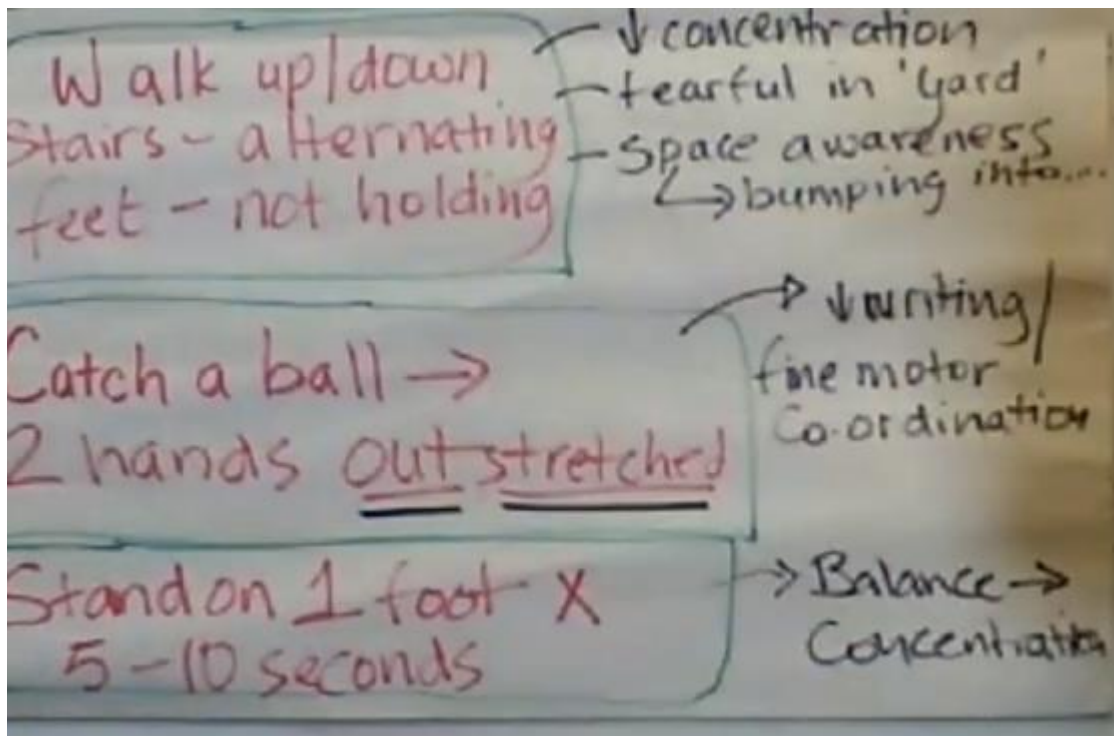 Walk up/down
Stairs - alternating
feet - not holding
↓ concentration
- tearful in 'yard'
- Space awareness
↳ bumping into...
Catch a ball →
2 hands outstretched
→ ↓ writing/
fine motor
Co-ordination
Stand on 1 foot X
5-10 seconds
→ Balance →
Concentration